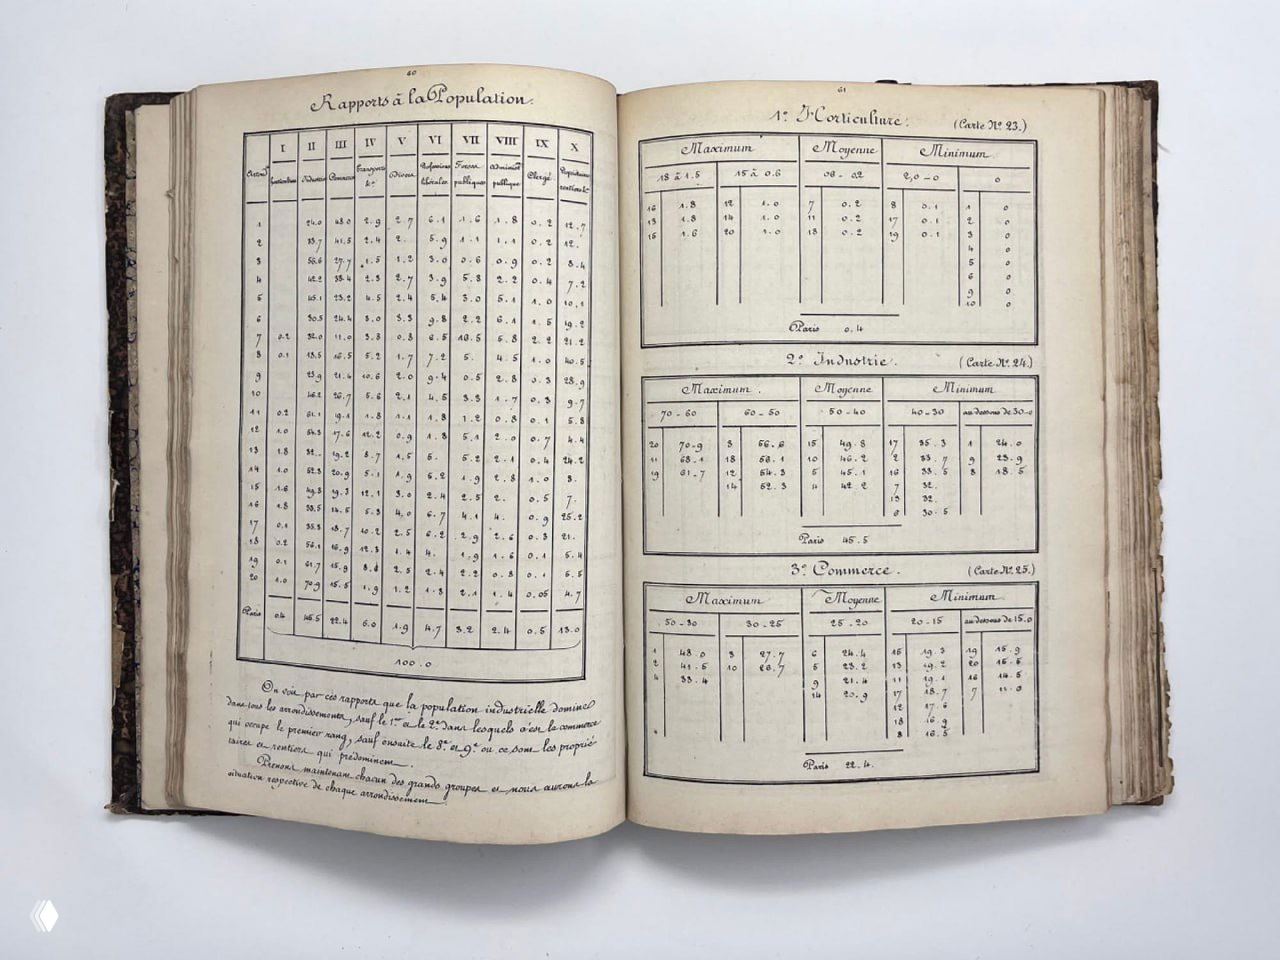 60
Rapports à la Population.
Arrond.t I II III IV V VI VII VIII IX X
Horticulture Industrie Commerce Transports &.a Divers Professions libérales Forces publiques Administ.on publique Clergé Propriétaires rentiers &.a
1 24.0 48.0 2.9 2.7 6.1 1.6 1.8 0.2 12.7
2 33.7 41.5 2.4 2. 5.9 1.1 1.1 0.2 12.
3 56.6 27.7 1.5 1.2 3.0 0.6 0.9 0.2 8.4
4 42.2 33.4 2.3 2.7 3.9 5.8 2.2 0.4 7.2
5 45.1 23.2 4.5 2.4 5.4 3.0 5.1 1.0 10.1
6 30.5 24.4 3.0 3.3 9.8 2.2 6.1 1.5 19.2
7 0.2 32.0 11.0 3.8 0.8 6.5 16.5 5.8 2.2 21.2
8 0.1 18.5 16.5 5.2 1.7 7.2 5. 4.5 1.0 40.5
9 23.9 21.4 10.6 2.0 9.4 0.5 2.8 0.3 28.9
10 46.2 26.7 5.6 2.1 4.5 3.3 1.7 0.3 9.7
11 0.2 68.1 19.1 1.8 1.1 1.8 1.2 0.8 0.1 5.8
12 1.0 54.3 17.6 12.2 0.9 1.8 5.1 2.0 0.7 4.4
13 1.8 32. 19.2 8.7 1.5 5. 5.2 2.1 0.4 24.2
14 1.0 52.3 20.9 5.1 1.9 5.2 1.9 2.8 1.0 8.
15 1.6 49.8 19.3 12.1 3.0 2.4 2.5 2. 0.5 7.
16 1.8 33.5 14.5 5.3 4.0 6.7 4.1 4. 0.9 25.2
17 0.1 35.3 18.7 10.2 2.5 6.2 2.9 2.6 0.3 21.
18 0.2 56.1 16.9 12.3 1.4 4. 1.9 1.6 0.1 5.4
19 0.1 61.7 15.9 8.6 2.5 2.4 2.2 0.8 0.1 5.5
20 1.0 70.9 15.5 1.9 1.2 1.3 2.1 1.4 0.05 4.7
Paris 0.4 45.5 22.4 6.0 1.9 4.7 3.2 2.4 0.5 13.0
100.0
On voit par ces rapports que la population industrielle domine
dans tous les arrondissements, sauf le 1.er et le 2.e dans lesquels c'est le commerce
qui occupe le premier rang, sauf ensuite le 8.e et 9.e où ce sont les proprié-
taires et rentiers qui prédominent.
Prenons maintenant chacun des grands groupes et nous aurons la
situation respective de chaque arrondissement
61
1.º Horticulture. (Carte N.º 23.)
Maximum Moyenne Minimum
18 à 1.5 15 à 0.6 06 - 02 2,0 - 0 0
16 1.8 12 1.0 7 0.2 8 0.1 1 0
13 1.8 14 1.0 11 0.2 17 0.1 2 0
15 1.6 20 1.0 18 0.2 19 0.1 3 0
4 0
5 0
6 0
9 0
10 0
Paris 0.4
2.º Industrie. (Carte N.º 24.)
Maximum. Moyenne Minimum
70 - 60 60 - 50 50 - 40 40 - 30 au dessous de 30-0
20 70-9 3 56.6 15 49.8 17 35.3 1 24.0
11 68-1 18 56.1 10 46.2 2 33.7 9 23.9
19 61-7 12 54.3 5 45.1 16 33.5 8 18.5
14 52.3 4 42.2 7 32.
13 32.
6 30.5
Paris 45.5
3.º Commerce. (Carte N.º 25.)
Maximum Moyenne Minimum
50 - 30 30 - 25 25 - 20 20 - 15 au dessous de 15.0
1 48.0 3 27.7 6 24.4 15 19.3 19 15.9
2 41.5 10 26.7 5 23.2 13 19.2 20 15.5
4 33.4 9 21.4 11 19.1 16 14.5
14 20.9 17 18.7 7 11.0
12 17.6
18 16.9
8 16.5
Paris 22.4.